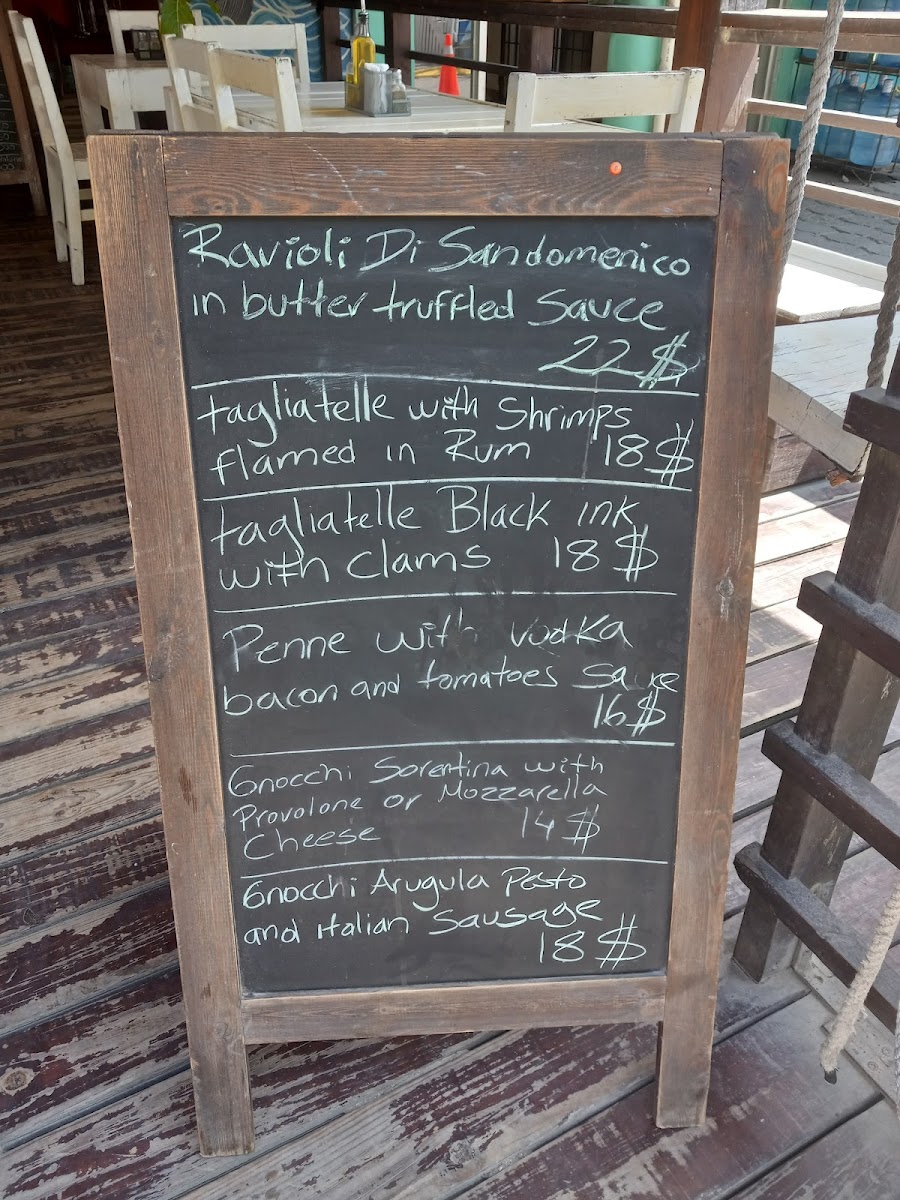 Ravioli Di Sandomenico
in butter truffled Sauce
22 $
tagliatelle with Shrimps
flamed in Rum 18 $
tagliatelle Black ink
with Clams 18 $
Penne with vodka
bacon and tomatoes sauce
16 $
Gnocchi Sorentina with
Provolone or Mozzarella
Cheese 14 $
Gnocchi Arugula Pesto
and italian Sausage
18 $